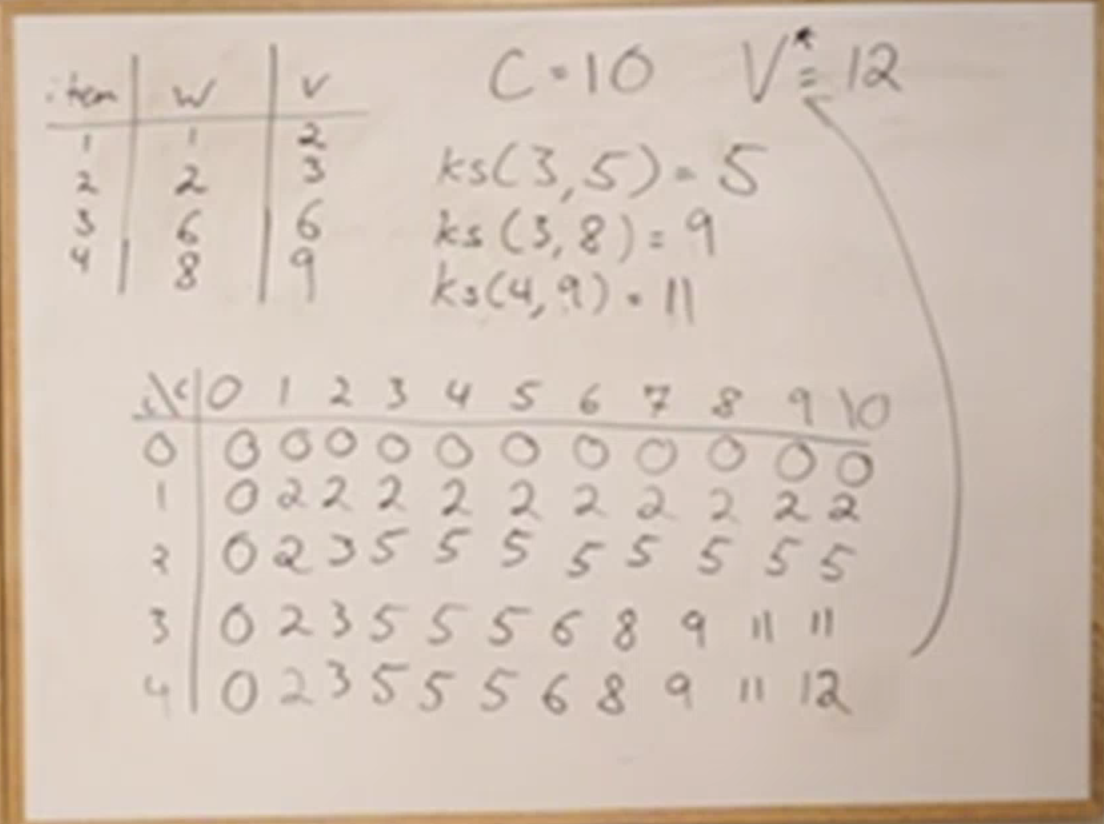 item W V
1 1 2
2 2 3
3 6 6
4 8 9
C = 10 V* = 12
ks(3,5) = 5
ks(3,8) = 9
ks(4,9) = 11
i\c 0 1 2 3 4 5 6 7 8 9 10
0 0 0 0 0 0 0 0 0 0 0 0
1 0 2 2 2 2 2 2 2 2 2 2
2 0 2 3 5 5 5 5 5 5 5 5
3 0 2 3 5 5 5 6 8 9 11 11
4 0 2 3 5 5 5 6 8 9 11 12